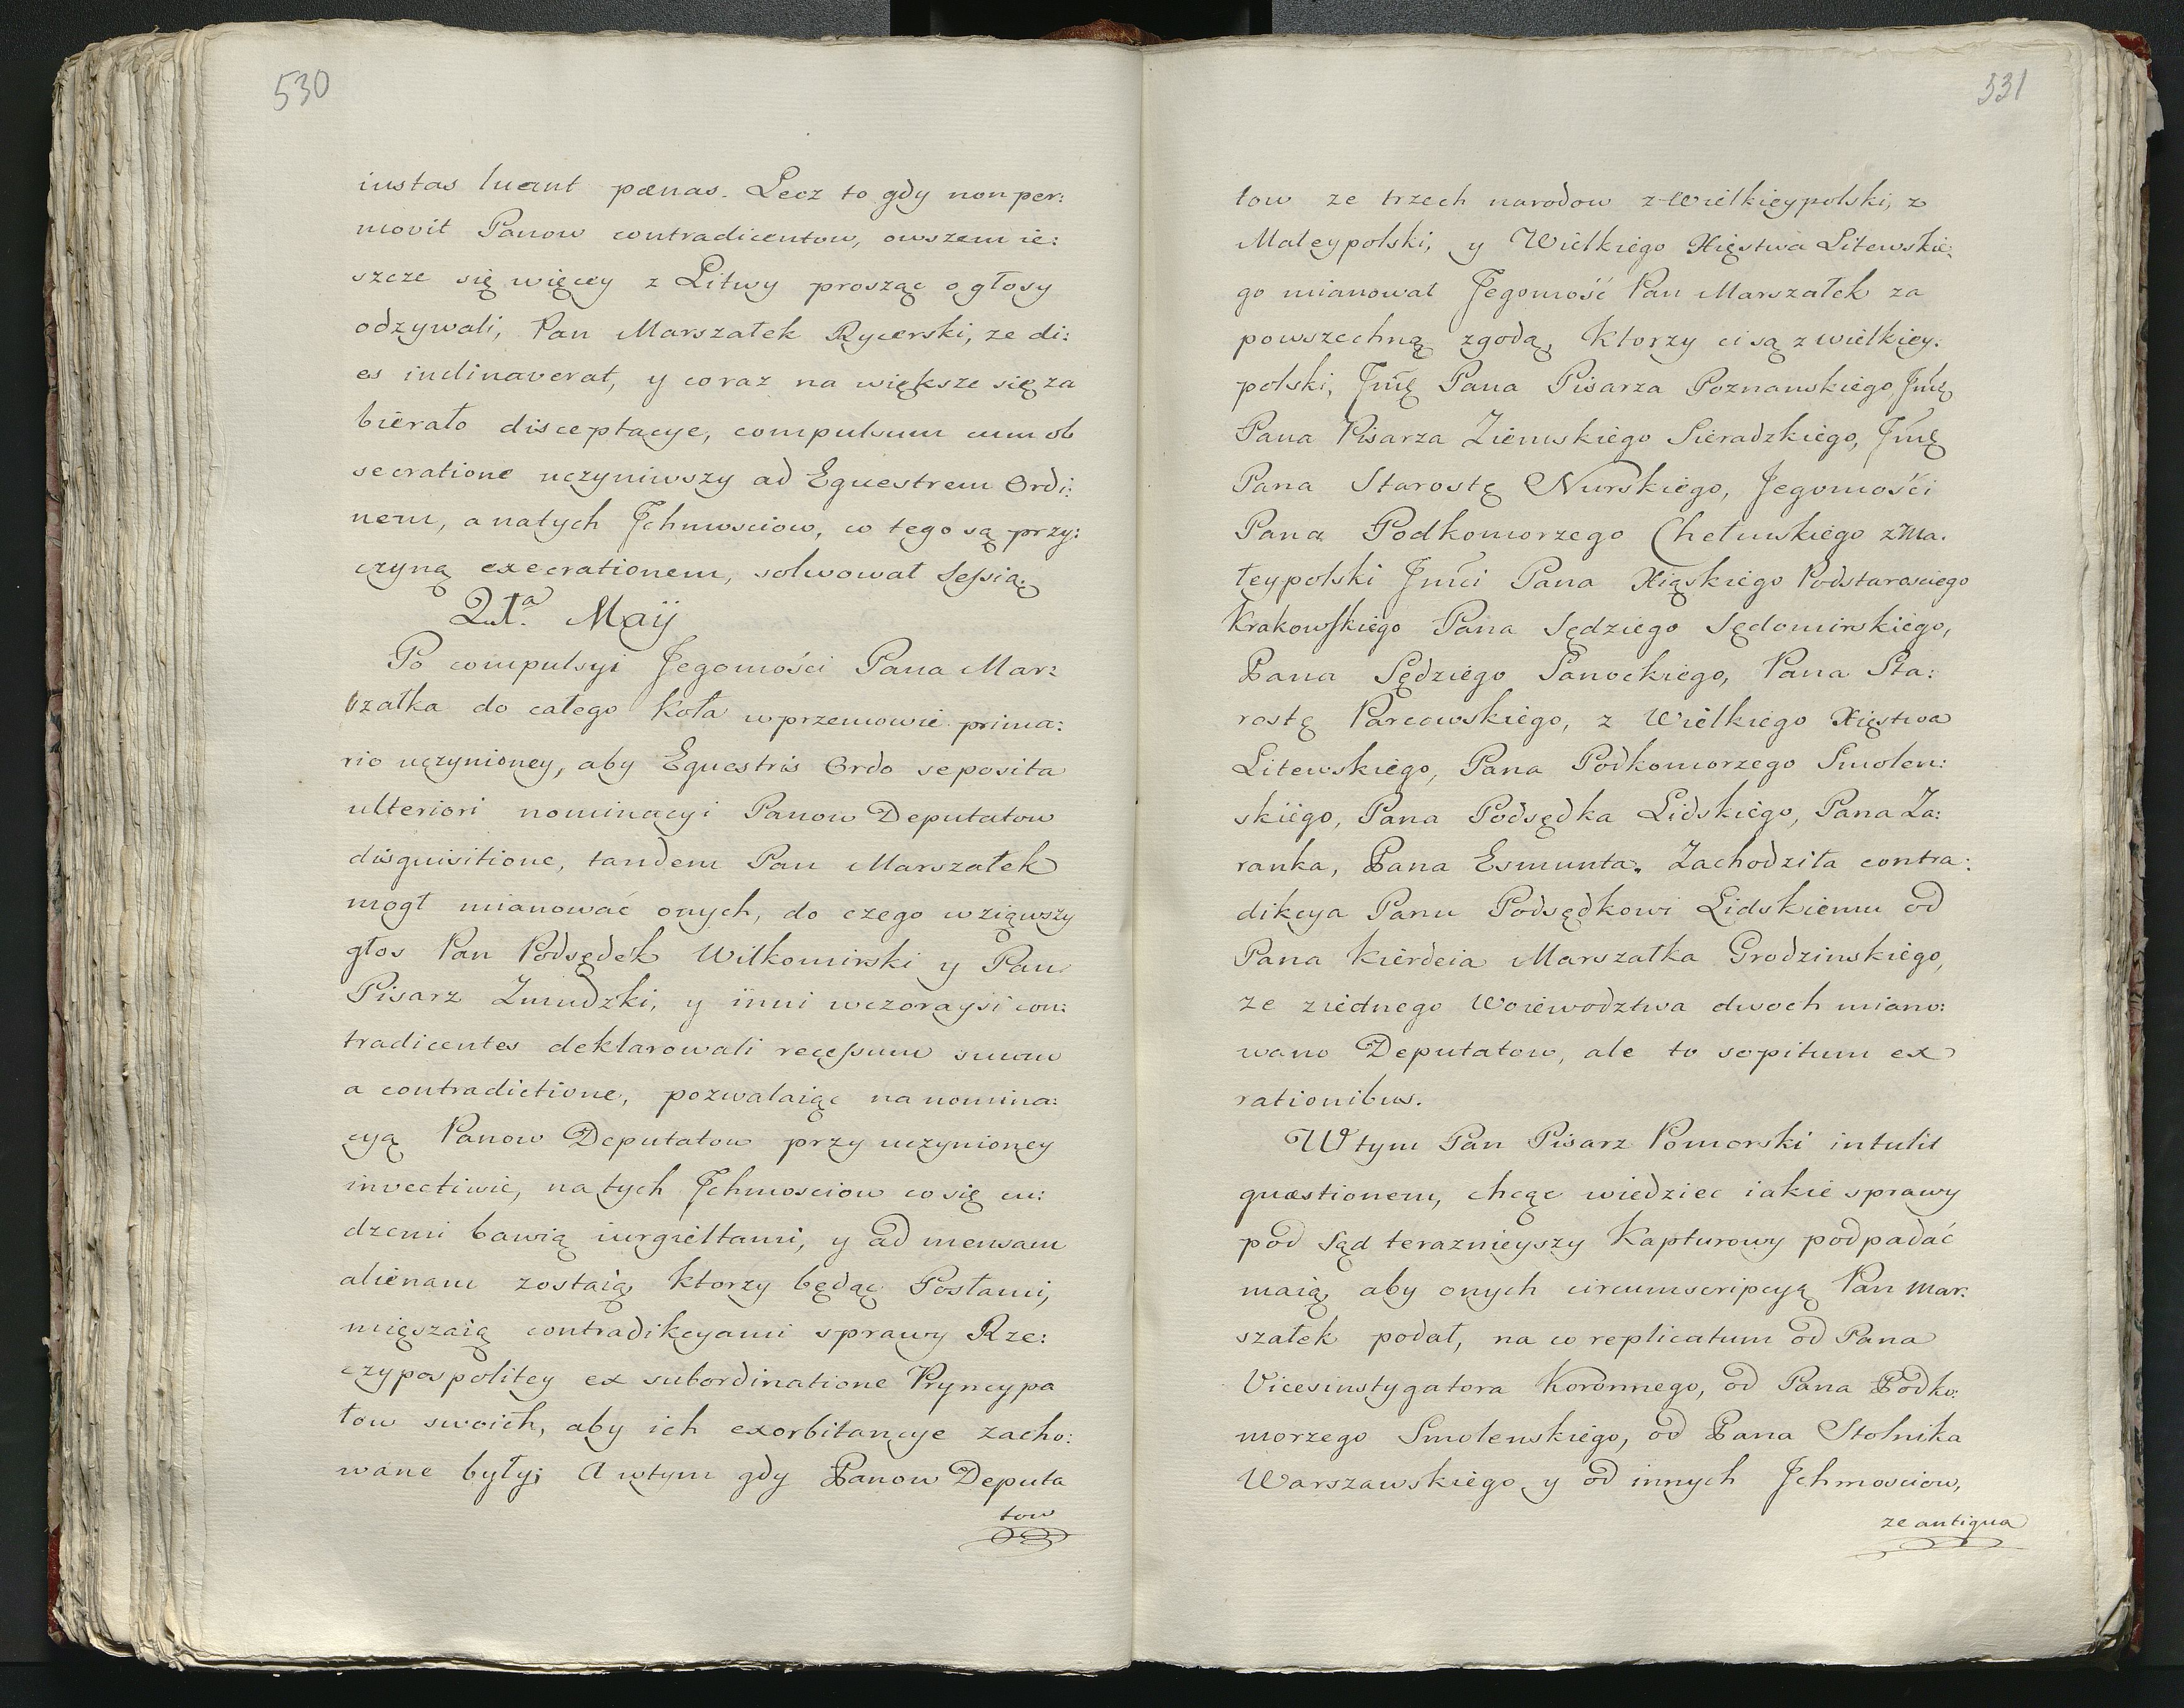 530
iustas luant pœnas. Lecz to gdy non per:
movit Panow contradicentow, owszem ie:
szcze się więcey z Litwy prosząc o głosy
odzywali, Pan Marszałek Rycerski, ze di:
es inclinaverat, y co raz na większe się za
bierało disceptacye, compulsum cum ob
secratione uczyniwszy ad Equestrem Ordi:
nem, a natych Jchmosciow, co tego są przy:
czyną execrationem, solwował Sessią.
21.ª Maÿ
Po compulsyi Jegomości Pana Mar:
szałka do całego Koła w przemowie prima:
rio uczynioney, aby Equestris Ordo seposita
ulteriori nominacyi Panow Deputatow
disquisitione, tandem Pan Marszałek
mogł mianować onych, do czego wziąwszy
głos Pan Podsędek Wiłkomirski y Pan
Pisarz Zmudzki, y inni wczoraysi con:
tradicentes deklarowali recessum suum
a contradictione, pozwalaiąc na nomina:
cyą Panow Deputatow przy uczynioney
invectiwie, na tych Jchmosciow co się cu:
dzemi bawią iurgieltami, y ad mensam
alienam zostaią, ktorzy będąc Posłami,
mięszaią contradikcyami sprawy Rze:
czypospolitey ex subordinatione Pryncypa
łow swoich, aby ich exorbitancye zacho:
wane były; A wtym gdy Panow Deputa
tow
531
tow ze trzech narodow z Wielkieypolski, z
Małeypolski, y Wielkiego Xięstwa Litewskie:
go mianował Jegomość Pan Marszałek za
powszechną zgodą, Ktorzy ci są z wielkiey:
polski, Jmę Pana Pisarza Poznanskiego, Jmę
Pana Pisarza Ziemskiego Sieradzkiego, Jmę
Pana Starostę Nurskiego, Jegomości
Pana Podkomorzego Chełmskiego z Ma:
łeypolski Jmci Pana Xiąskiego Podstarosciego
Krakowskiego Pana Sędziego Sędomirskiego,
Pana Sędziego Sanockiego, Pana Sta:
rostę Parcowskiego, z Wielkiego Xięstwa
Litewskiego, Pana Podkomorzego Smolen:
skiego, Pana Podsędka Lidskiego, Pana Za:
ranka, Pana Esmunta. Zachodziła contra:
dikcya Panu Podsędkowi Lidskiemu od
Pana Kierdeia Marszałka Grodzinskiego,
ze ziednego Woiewodztwa dwoch miano:
wano Deputatow, ale to sopitum ex
rationibus.
W tym Pan Pisarz Pomorski intulit
quæstionem, chcąc wiedziec iakie sprawy
pod Sąd teraznieyszy Kapturowy podpadać
maią, aby onych circumscripcyą Pan Mar:
szałek podał, na co replicatum od Pana
Vicesinstygatora Koronnego, od Pana Podko:
morzego Smolenskiego, od Pana Stolnika
Warszawskiego y od innych Jchmosciow,
ze antiqua